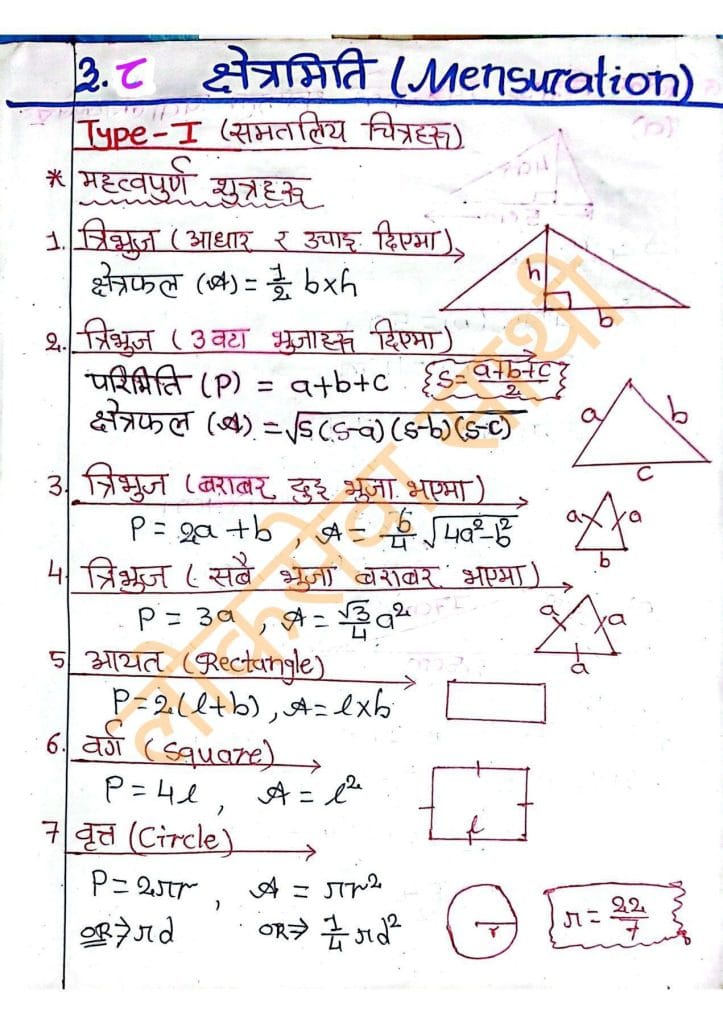 ३.८ क्षेत्रमिति (Mensuration)
Type-I (समतलिय चित्रहरू)
* महत्वपुर्ण शुत्रहरू
1. त्रिभुज (आधार र उचाइ दिएमा)
क्षेत्रफल (A) = 1/2 b×h
h
b
2. त्रिभुज (3 वटा भुजाहरू दिएमा)
परिमिति (P) = a+b+c {S = a+b+c/2}
क्षेत्रफल (A) = √S(S-a)(S-b)(S-c)
a b
c
3. त्रिभुज (बराबर दुइ भुजा भएमा)
P = 2a+b, A = b/4 √4a²-b²
a a
b
4. त्रिभुज (सबै भुजा बराबर भएमा)
P = 3a, A = √3/4 a²
a a
a
5 आयत (Rectangle)
P = 2(l+b), A = l×b
6. वर्ग (Square)
P = 4l, A = l²
l
7 वृत्त (Circle)
P = 2πr, A = πr²
OR⇒ πd OR⇒ 1/4 πd²
r
π = 22/7
लोकसेवा साथी